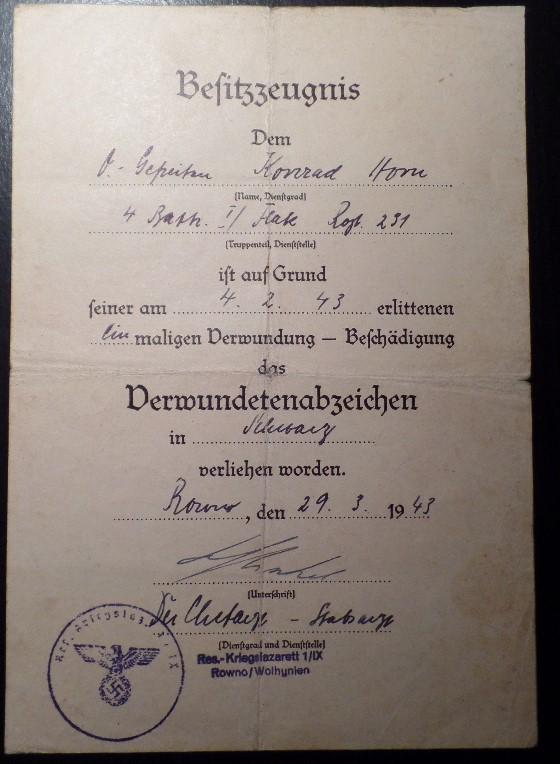 Besitzzeugnis
Dem
O.-Gefreiten Konrad Horn
(Name, Dienstgrad)
4 Battr. I/ Flak Rgt. 231
(Truppenteil, Dienststelle)
ist auf Grund
seiner am 4. 2. 43 erlittenen
Ein maligen Verwundung — Beschädigung
das
Verwundetenabzeichen
in Schwarz
verliehen worden.
Rowno, den 29. 3. 1943
(Unterschrift)
Der Chefarzt - Stabsarzt
(Dienstgrad und Dienststelle)
Res.-Kriegslazarett 1/IX
Rowno/Wolhynien